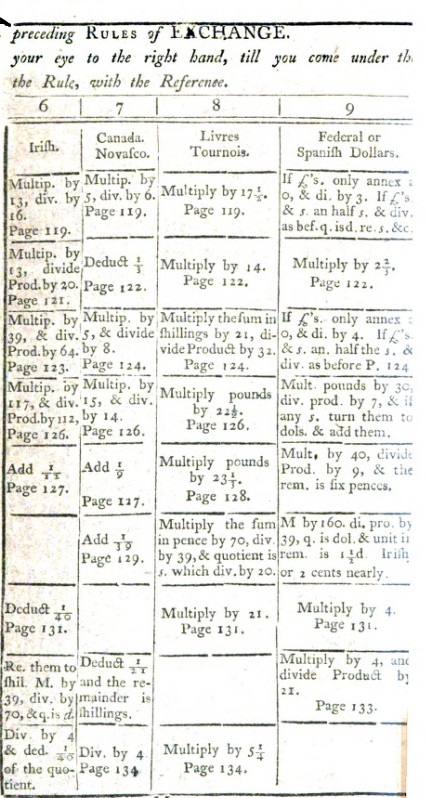 preceding RULES of EXCHANGE.
your eye to the right hand, till you come under th
the Rule, with the Reference.
6
7
8
9
Iriſh.
Canada.
Novaſco.
Livres
Tournois.
Federal or
Spaniſh Dollars.
Multip. by
13, div. by
16.
Page 119.
Multip. by
5, div. by 6.
Page 119.
Multiply by 17 ½.
Page 119.
If £'s. only annex
0, & di. by 3. If £'s
& s. an half s. & div.
as bef. q. isd. re. s. &c.
Multip. by
13, divide
Prod. by 20.
Page 121.
Deduct ⅓
Page 122.
Multiply by 14.
Page 122.
Multiply by 2⅔.
Page 122.
Multip. by
39, & div.
Prod. by 64.
Page 123.
Multip. by
5, & divide
by 8.
Page 124.
Multiply the ſum in
ſhillings by 21, di-
vide Product by 32.
Page 124.
If £'s. only annex
0, & di. by 4. If £'s
& s. an. half the s. &
div. as before P. 124
Multip. by
117, & div.
Prod. by 112,
Page 126.
Multip. by
15, & div.
by 14.
Page 126.
Multiply pounds
by 22½.
Page 126.
Mult. pounds by 30,
div. prod. by 7, & if
any s. turn them to
dols. & add them.
Add 1/12
Page 127.
Add 1/9
Page 127.
Multiply pounds
by 23⅓.
Page 128.
Mult. by 40, divide
Prod. by 9, & the
rem. is ſix pences.
Add 1/39
Page 129.
Multiply the ſum
in pence by 70, div.
by 39, & quotient is
s. which div. by 20.
M by 160. di. pro. by
39, q. is dol. & unit in
rem. is 1½d. Iriſh
or 2 cents nearly.
Deduct 1/40
Page 131.
Multiply by 21.
Page 131.
Multiply by 4.
Page 131.
Re. them to
ſhil. M. by
39, div. by
70, & q. is d.
Deduct 1/21
and the re-
mainder is
ſhillings.
Multiply by 4, and
divide Product by
21.
Page 133.
Div. by 4
& ded. 1/40
of the quo-
tient.
Div. by 4
Page 134
Multiply by 5¼
Page 134.